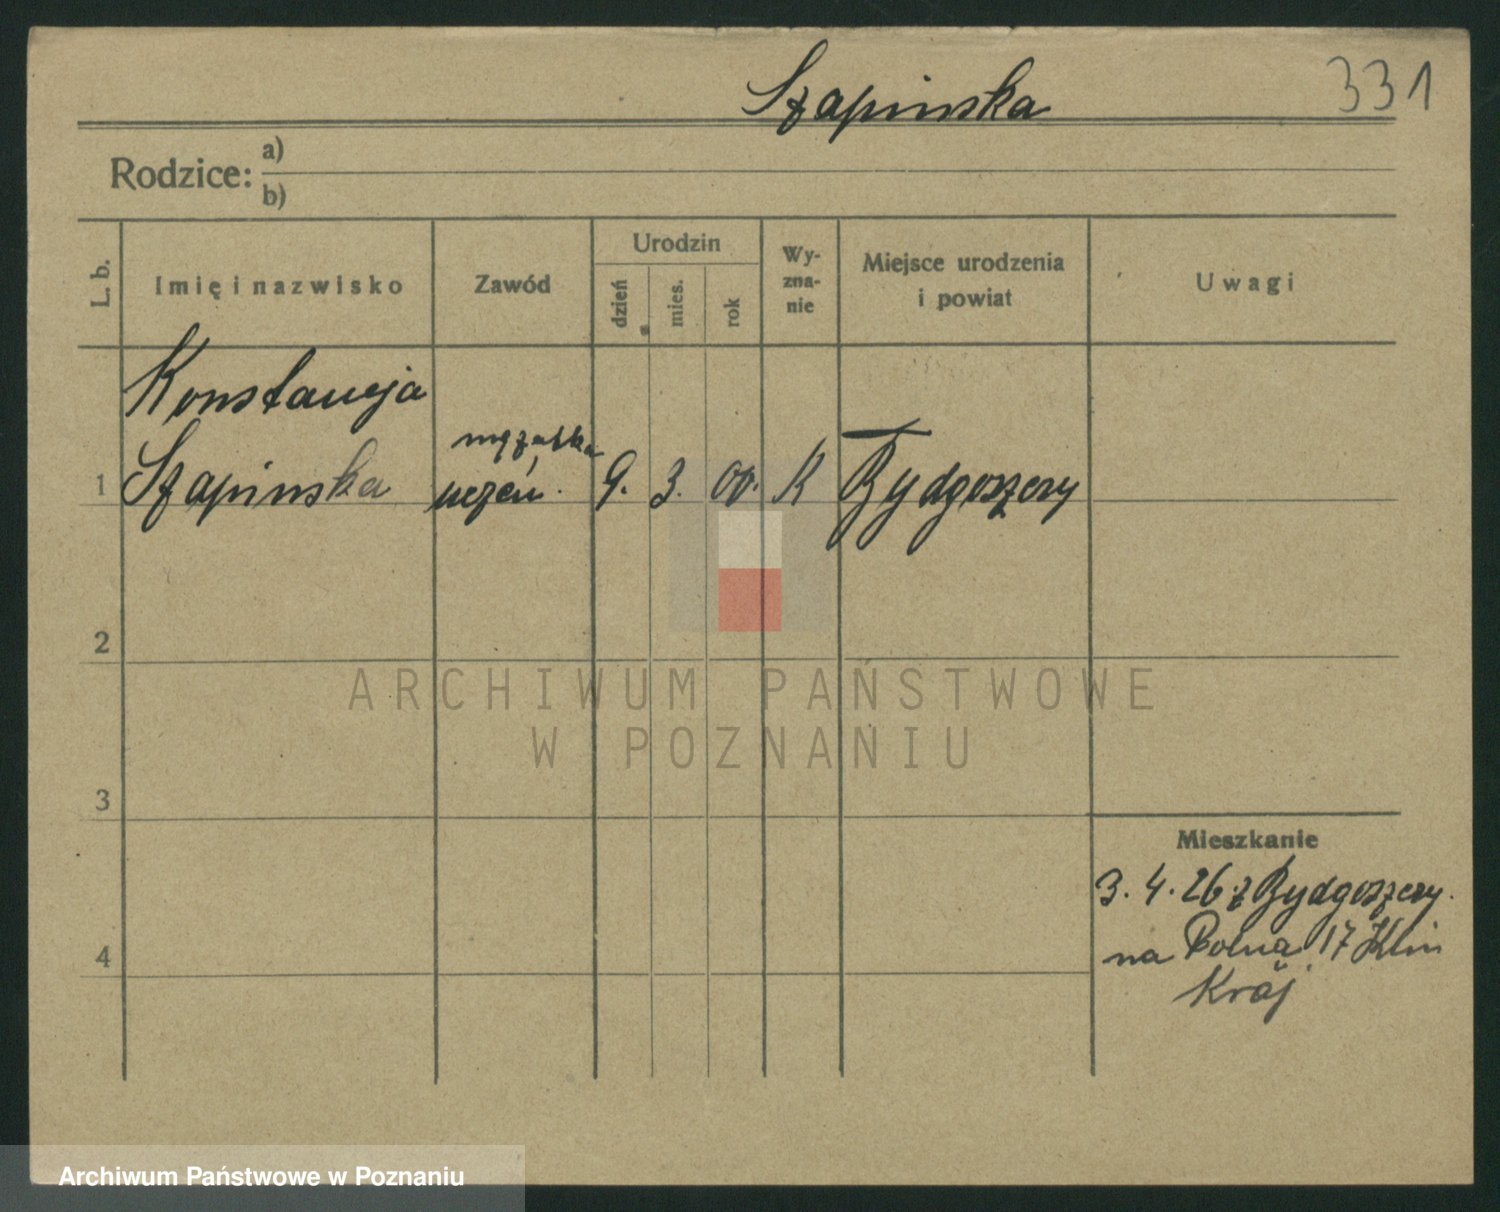 331
Szapinska
Rodzice: a)
b)
L. b.
Imię i nazwisko
Zawód
Urodzin
dzień
mies.
rok
Wy-
zna-
nie
Miejsce urodzenia
i powiat
Uwagi
Konstancja
mężatka
1 Szapinska uczeń. 9. 3. 00. K Bydgoszczy
2
ARCHIWUM PAŃSTWOWE
W POZNANIU
3
Mieszkanie
3. 4. 26 z Bydgoszczy.
na Polna 17
4
Archiwum Państwowe w Poznaniu